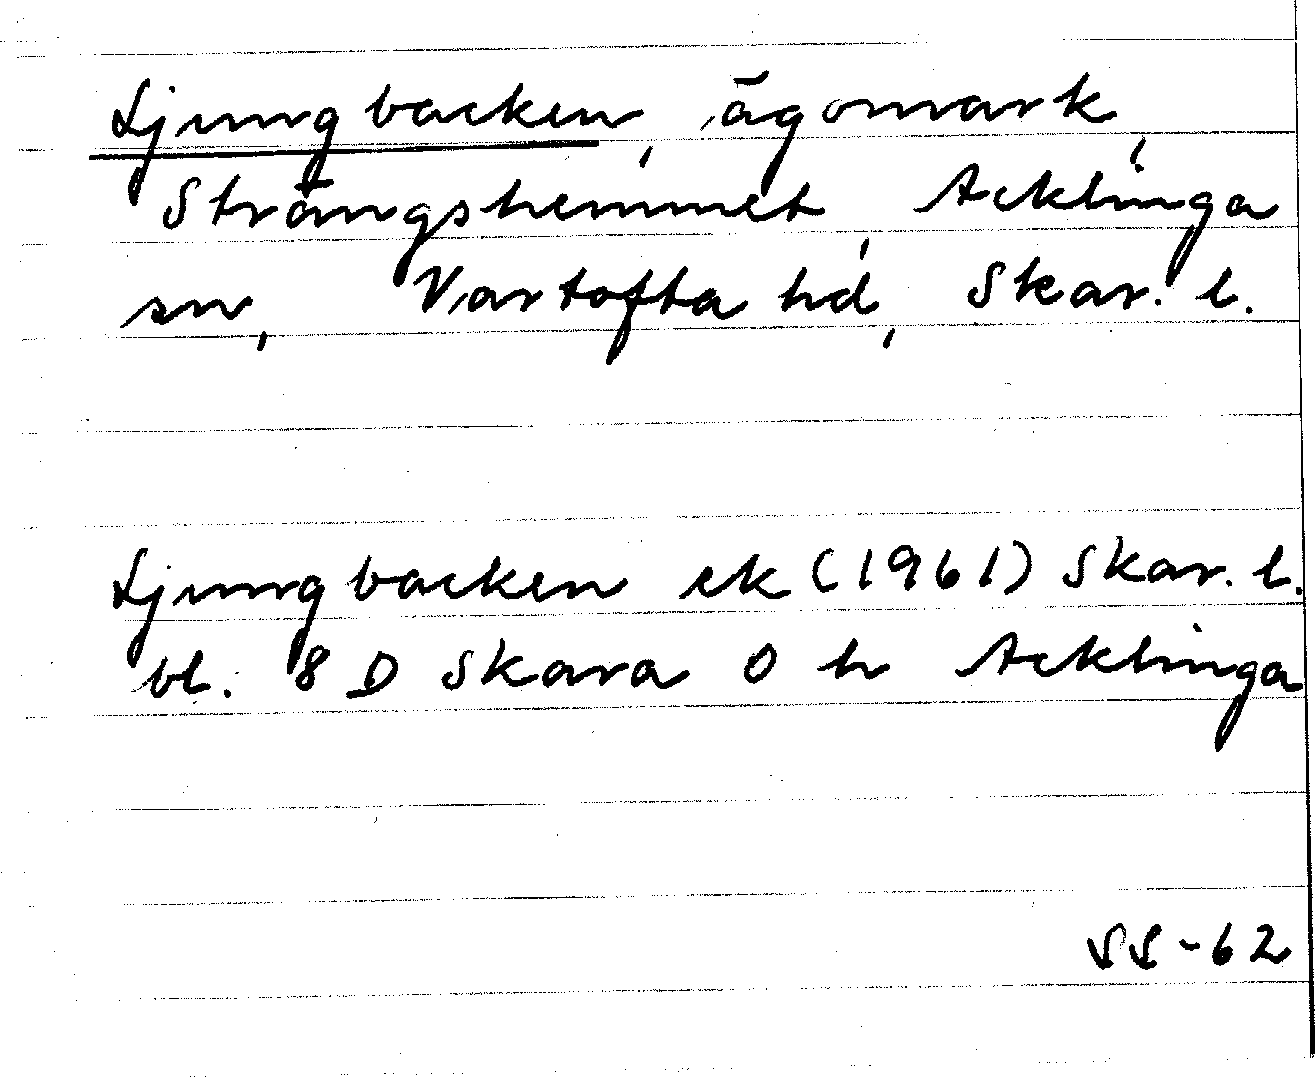 Ljungbacken, ägomark,
Strängshemmet, Acklinga
sn, Vartofta hd, Skar. l.
Ljungbacken ek (1961) Skar. l.
bl. 8 D Skara 0 h Acklinga
SS-62